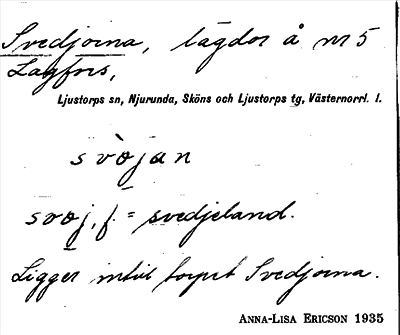 Svedjorna, lägdor å nr 5
Lagfors,
Ljustorps sn, Njurunda, Sköns och Ljustorps tg, Västernorrl. l.
svòjan
svoj, f. = svedjeland.
Ligger intill torpet Svedjorna.
ANNA-LISA ERICSON 1935